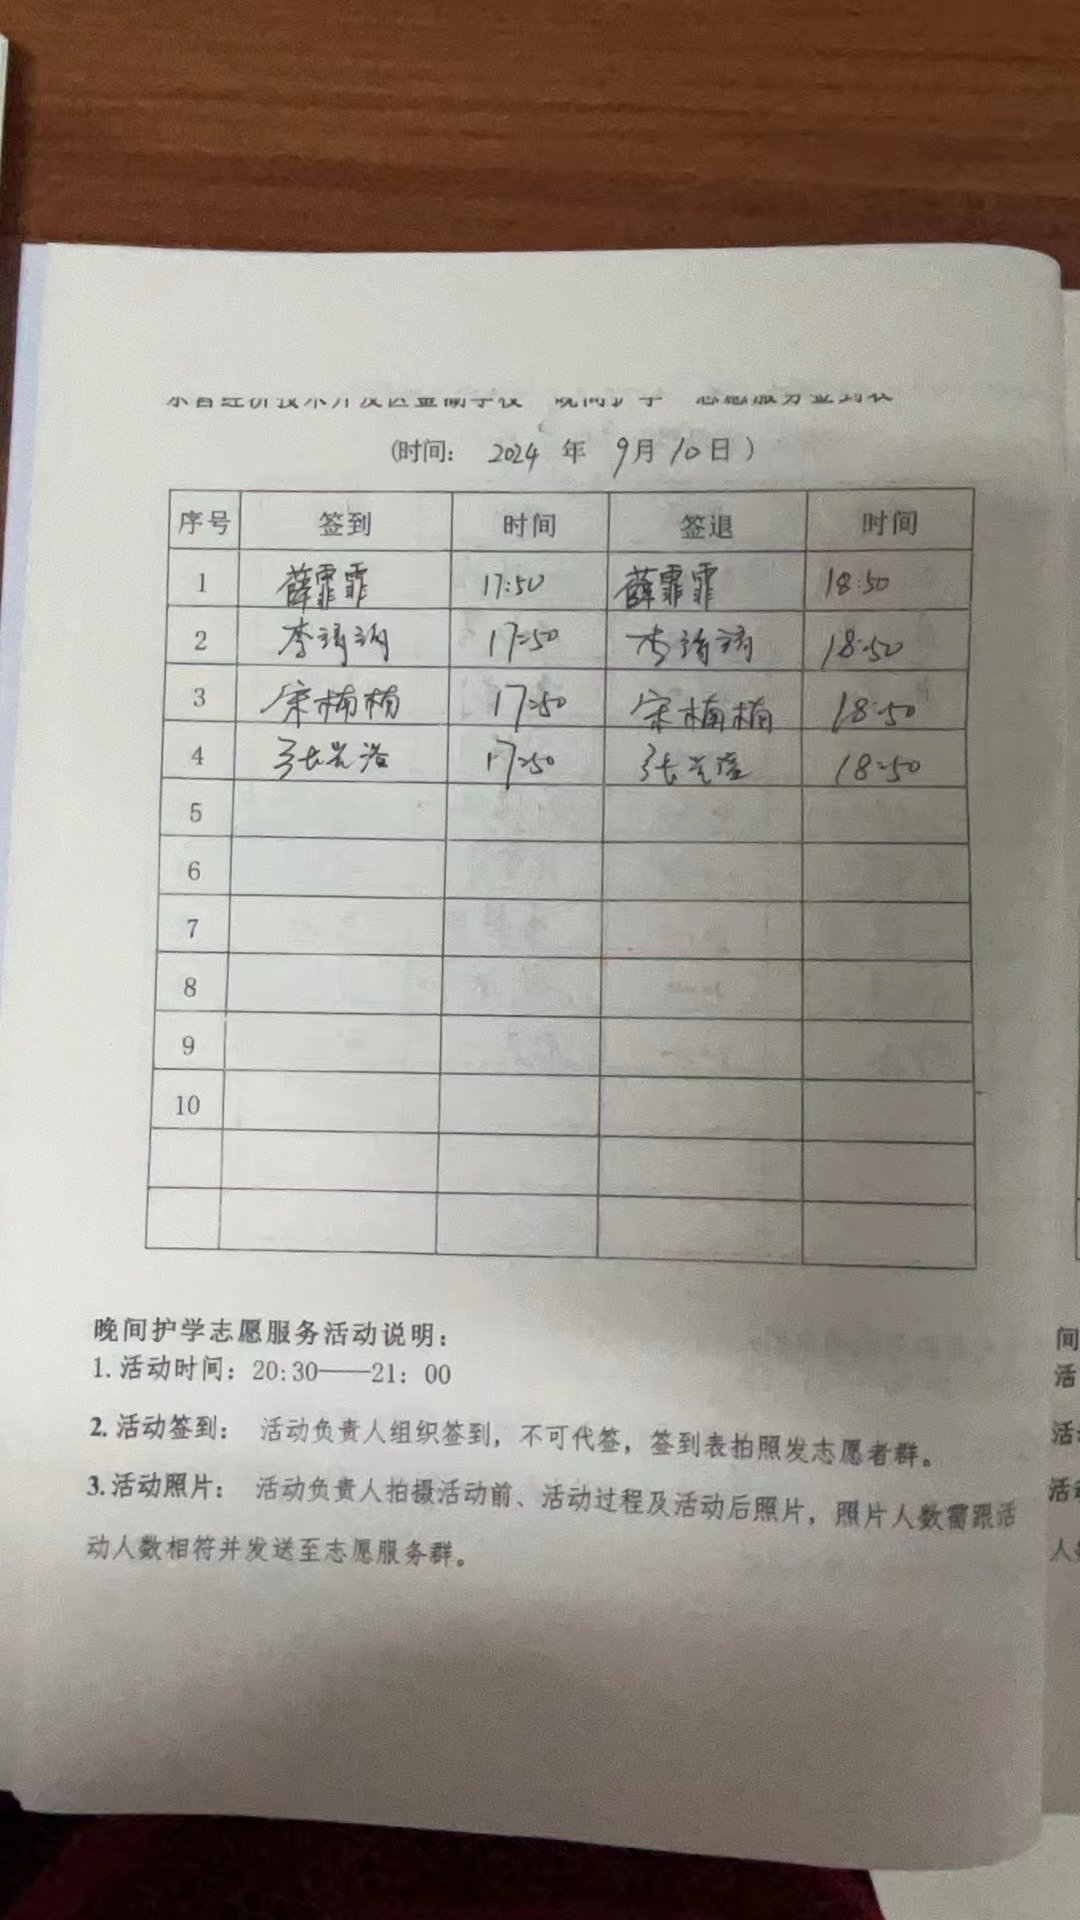 (时间： 2024 年 9月10日)
序号 签到 时间 签退 时间
1 薛霏霏 17:50 薛霏霏 18:50
2 李 17:50 李 18:50
3 宋楠楠 17:50 宋楠楠 18:50
4 张 17:50 张 18:50
5
6
7
8
9
10
晚间护学志愿服务活动说明：
1. 活动时间：20:30——21：00
2. 活动签到： 活动负责人组织签到，不可代签，签到表拍照发志愿者群。
3. 活动照片： 活动负责人拍摄活动前、活动过程及活动后照片，照片人数需跟活
动人数相符并发送至志愿服务群。
间
活
活
活
人